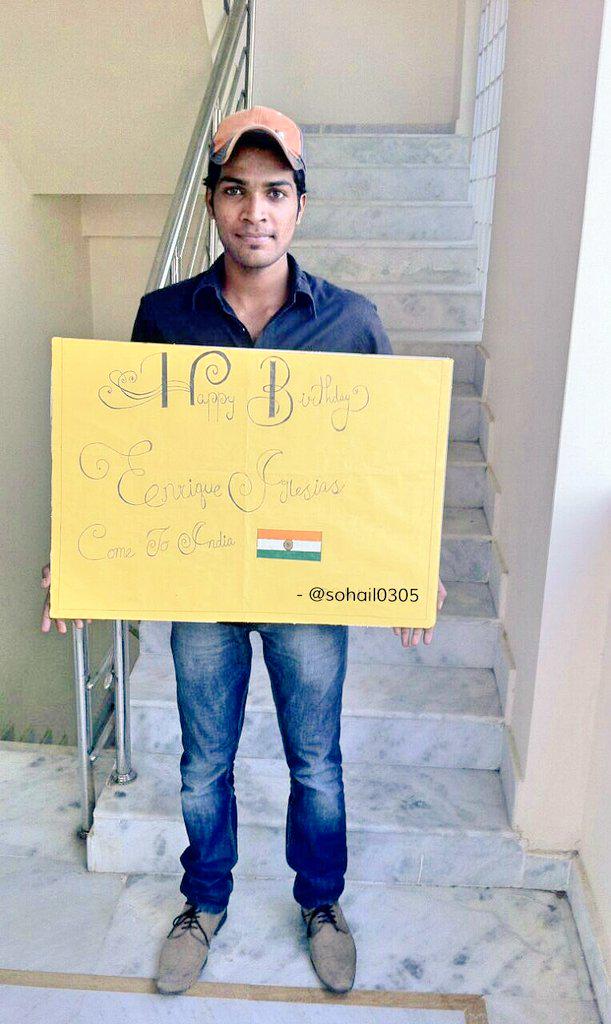 Happy Birthday
Enrique Iglesias
Come To India
- @sohail0305